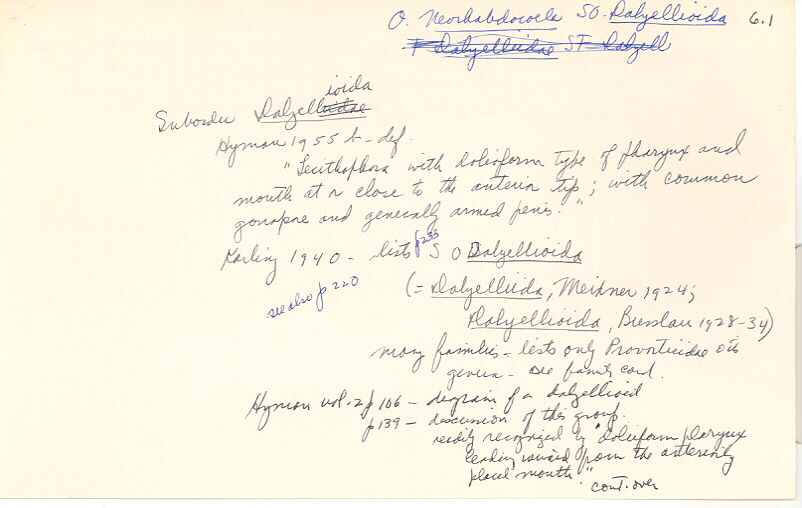 O. Neorhabdocoela SO. Dalyellioida 6.1
F Dalyelliidae SF Dalyell
Suborder Dalyellioida
Hyman 1955 b - def.
"Lecithophora with doliiform type of pharynx and
mouth at or close to the anterior tip; with common
gonopore and generally armed penis."
Karling 1940 - lists p233 SO Dalyellioida
see also p 220
(= Dalyelliida, Meixner 1924;
Dalyellioida, Bresslau 1928-34)
many families - lists only Provorticidae
genera - see family card.
Hyman vol. 2 p 106 - diagram of a dalyellioid
p 139 - discussion of this group.
readily recognized by "doliiform pharynx
leading inward from the anteriorly
placed mouth."
cont. over